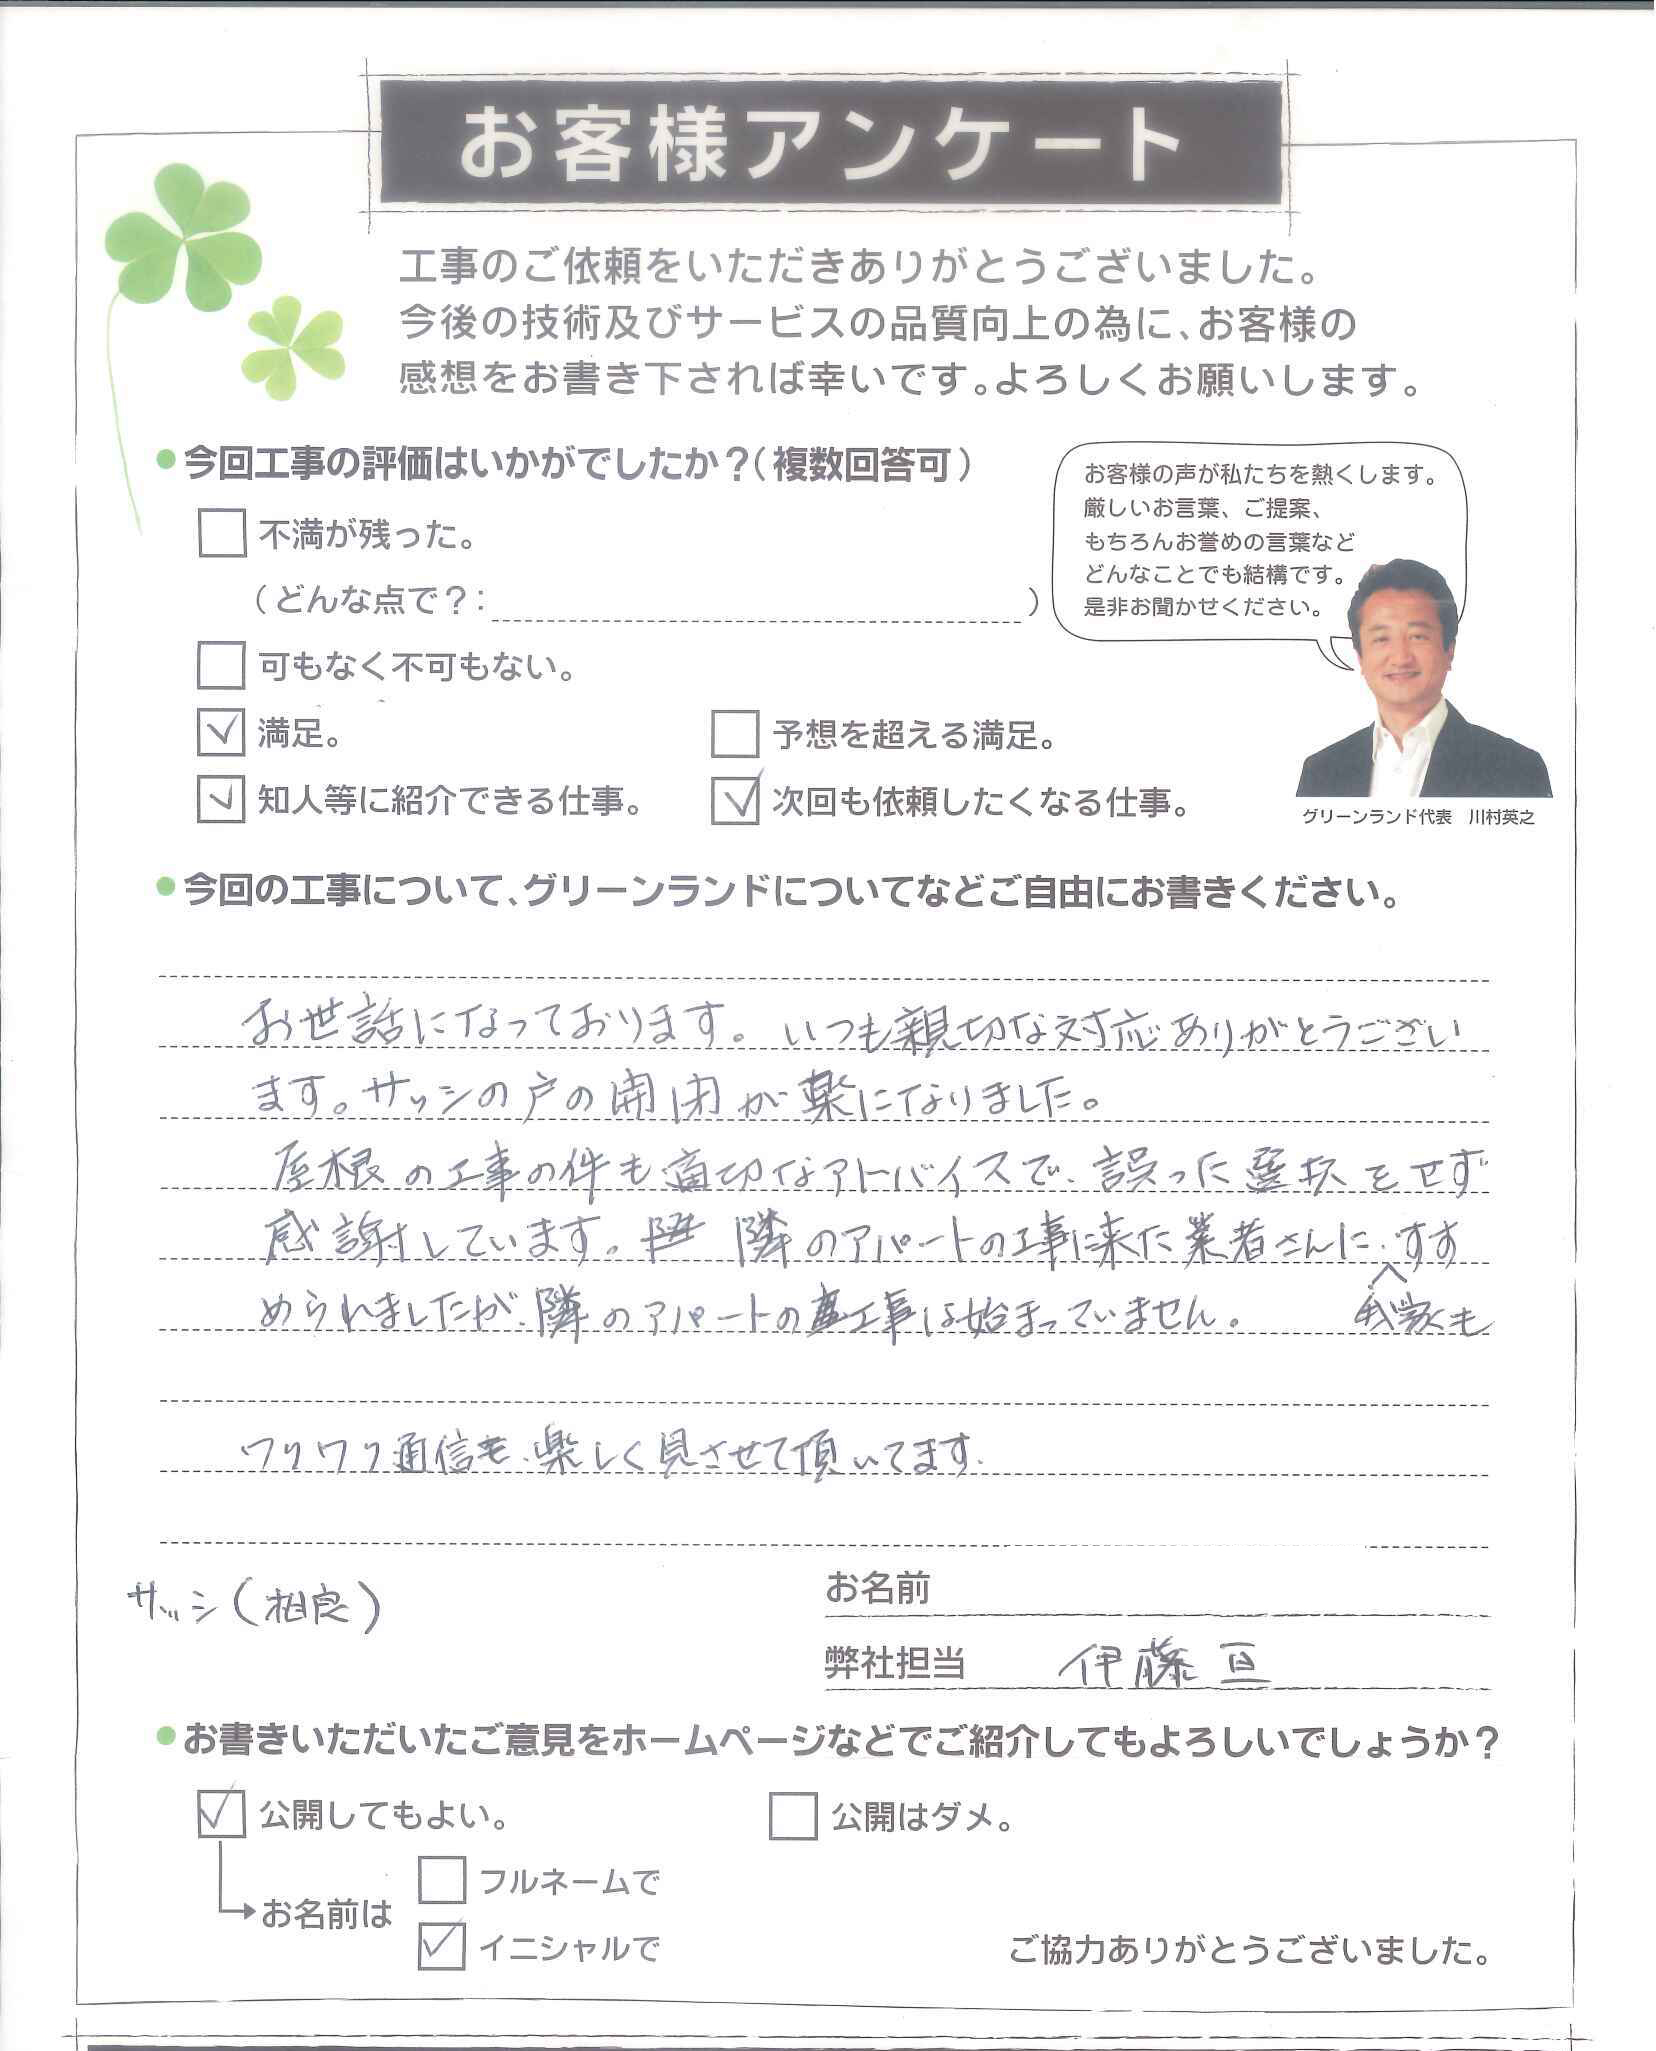 お客様アンケート
工事のご依頼をいただきありがとうございました。
今後の技術及びサービスの品質向上の為に、お客様の
感想をお書き下されば幸いです。よろしくお願いします。
今回工事の評価はいかがでしたか?(複数回答可)
不満が残った。
(どんな点で?: )
可もなく不可もない。
満足。
予想を超える満足。
知人等に紹介できる仕事。
次回も依頼したくなる仕事。
お客様の声が私たちを熱くします。
厳しいお言葉、ご提案、
もちろんお誉めの言葉など
どんなことでも結構です。
是非お聞かせください。
グリーンランド代表 川村英之
今回の工事について、グリーンランドについてなどご自由にお書きください。
お世話になっております。いつも親切な対応ありがとうござい
ます。サッシの戸の開閉が楽になりました。
屋根の工事の件も適切なアトバイスで、誤った選択をせず
感謝しています。隣のアパートの工事に来た業者さんに、すす
められましたが、隣のアパートの工事は始まっていません。 我家も
ワリワリ通信も、楽しく見させて頂いてます。
サッシ(相良)
お名前
弊社担当 伊藤亘
お書きいただいたご意見をホームページなどでご紹介してもよろしいでしょうか?
公開してもよい。
公開はダメ。
お名前は
フルネームで
イニシャルで
ご協力ありがとうございました。